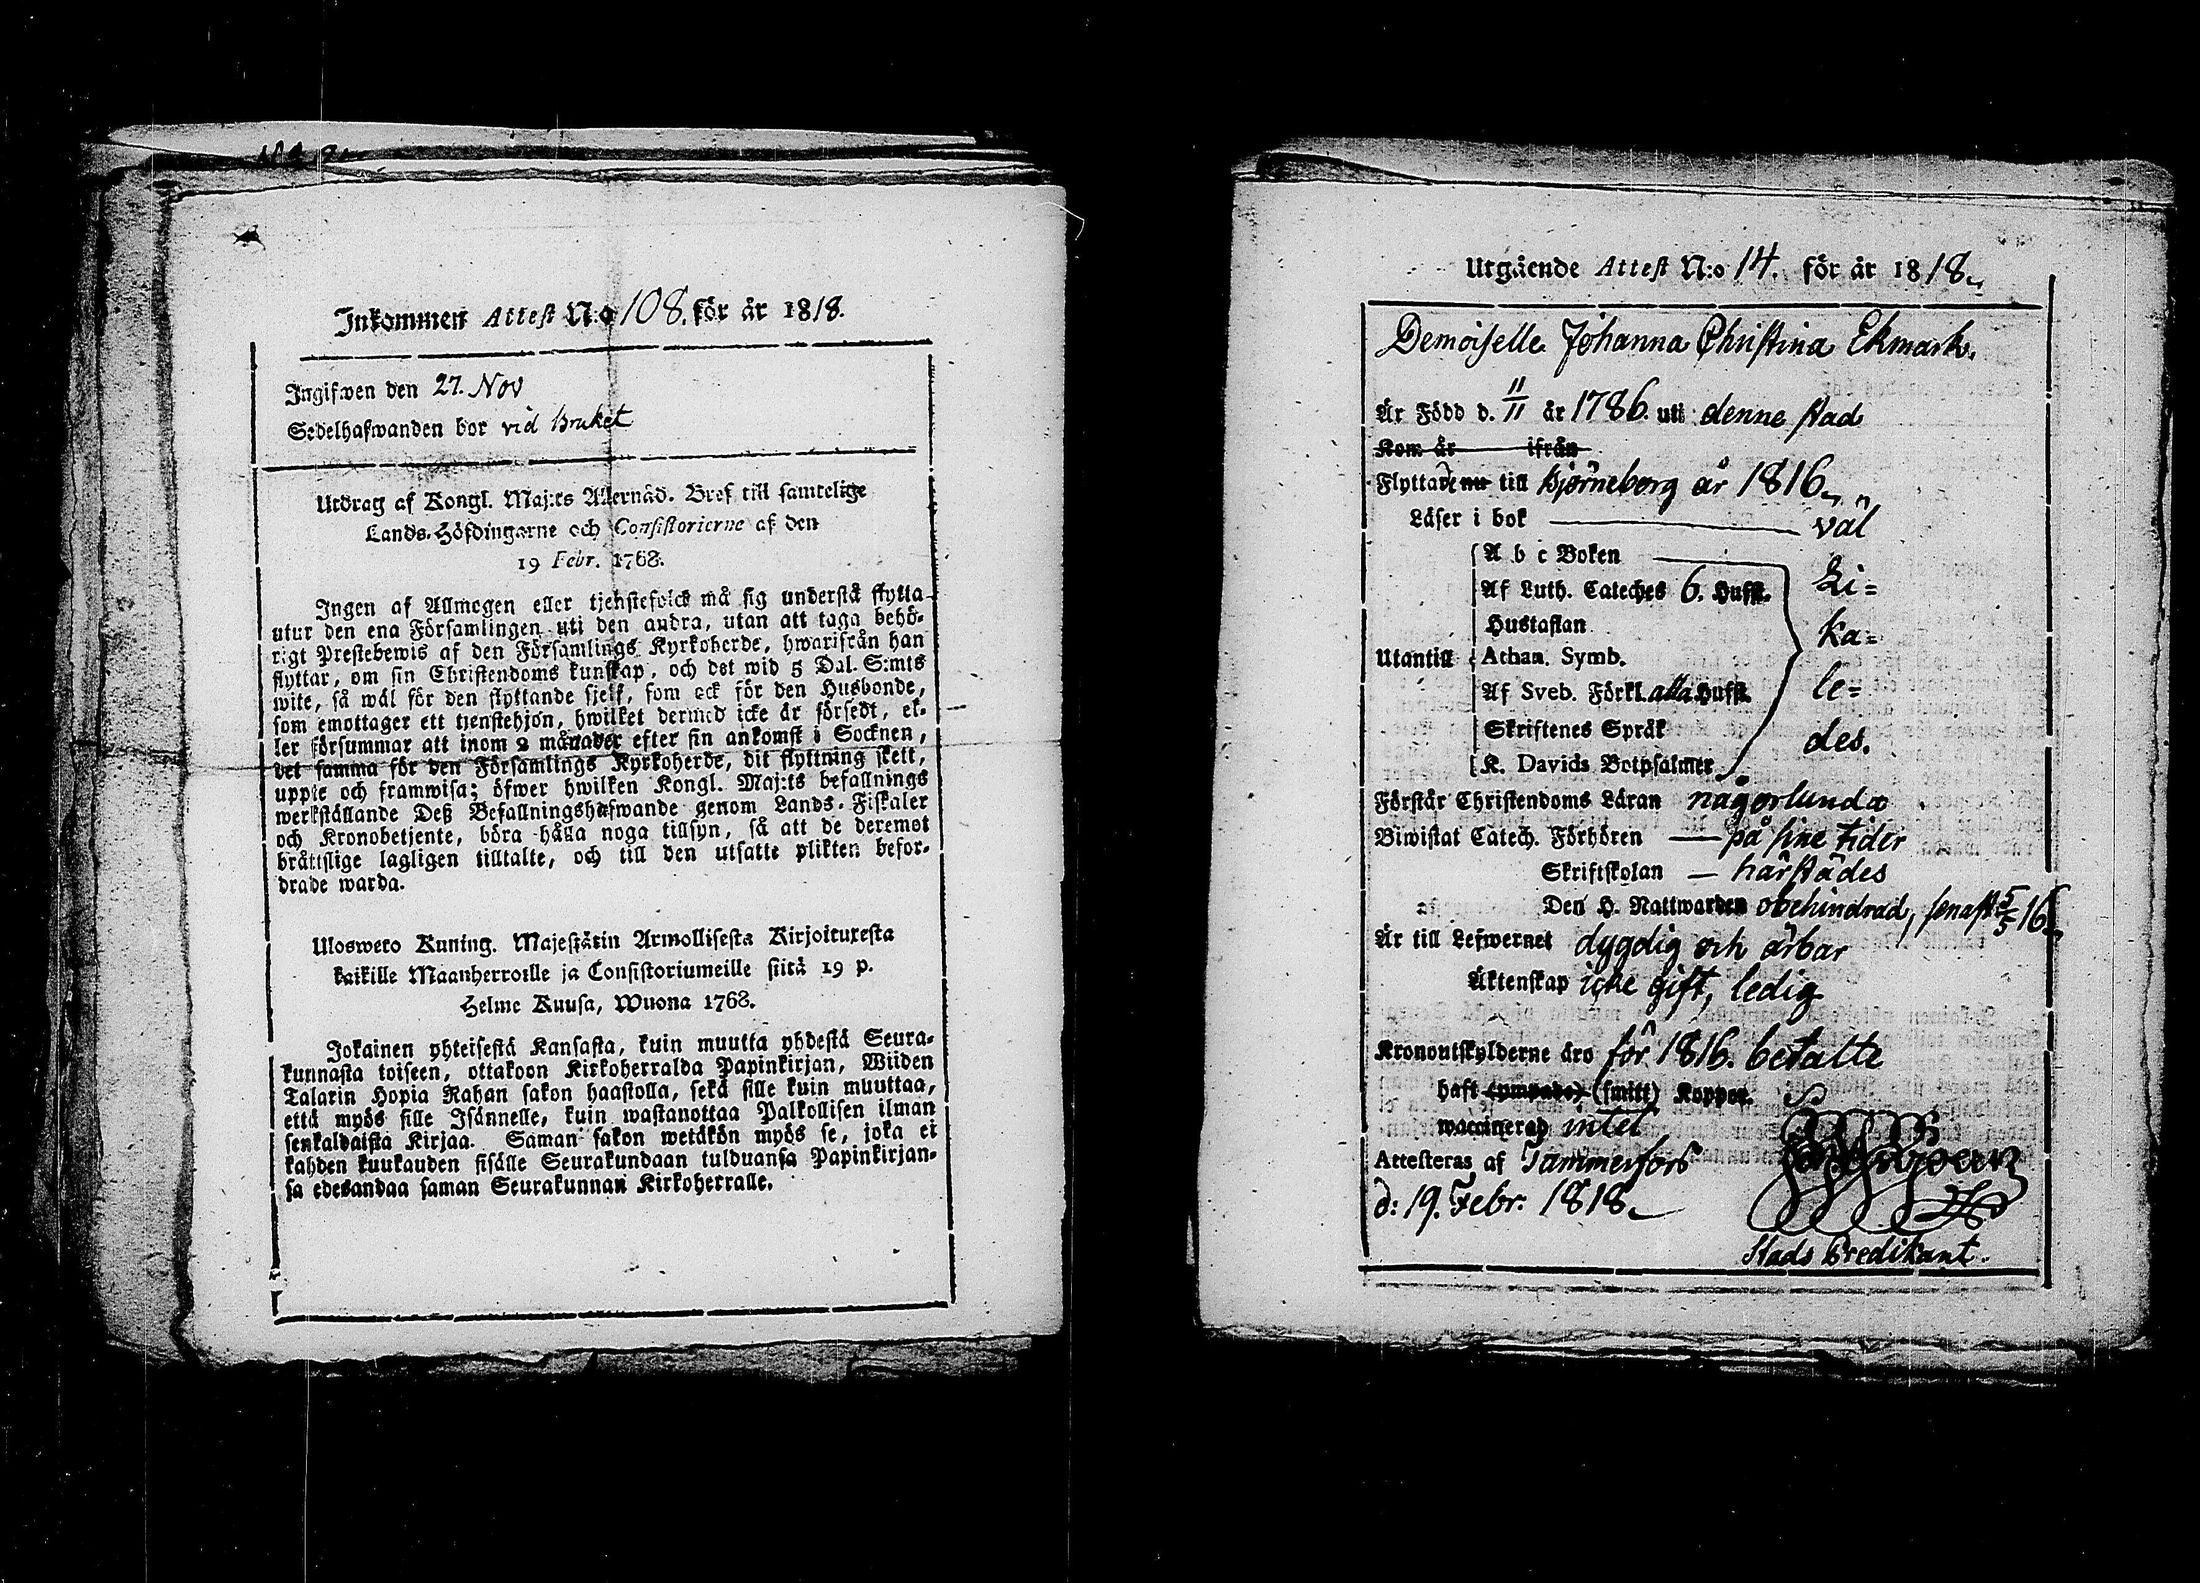 Inkommen Attest N:o 108. för år 1818.
Ingifwen den 27. Nov
Sedelhafwanden bor vid Bruket
Utdrag af Kongl. Maj:ts Allernåd. Bref till samtelige
Lands-Höfdingarne och Consistorierne af den
19 Febr. 1768.
Ingen af Allmogen eller tjenstefolck må sig understå flytta
utur den ena Församlingen uti den andra, utan att taga behö-
rigt Prestebewis af den Församlings Kyrkoherde, hwarifrån han
flyttar, om sin Christendoms kunskap, och det wid 5 Dal. S:mts
wite, så wäl för den flyttande sjelf, som ock för den Husbonde,
som emottager ett tjenstehjon, hwilket dermed icke är försedt, el-
ler försummar att inom 2 månader efter sin ankomst i Socknen,
det samma för den Församlings Kyrkoherde, dit flyttning skett,
uppte och framwisa; öfwer hwilken Kongl. Maj:ts befallnings
werkställande Deß Befallningshafwande genom Lands-Fiskaler
och Kronobetjente, böra hålla noga tillsyn, så att de deremot
bråttslige lagligen tilltalte, och till den utsatte plikten befor-
drade warda.
Ulosweto Kuning. Majestätin Armollisesta Kirjoituresta
kaikille Maanherroille ja Consistoriumeille siitä 19 p.
Helme Kuusa, Wuona 1768.
Jokainen yhteisestä Kansasta, kuin muutta yhdestä Seura-
kunnasta toiseen, ottakoon Kirkoherralda Papinkirjan, Wiiden
Talarin Hopia Rahan sakon haastolla, sekä sille kuin muuttaa,
että myös sille Isännelle, kuin wastanottaa Palkollisen ilman
senkaldaista Kirjaa. Saman sakon wetäkön myös se, joka ei
kahden kuukauden sisälle Seurakundaan tulduansa Papinkirjan-
sa edesandaa saman Seurakunnan Kirkoherralle.
Utgående Attest N:o 14. för år 1818.
Demoiselle Johanna Christina Ekmark.
Är Född d. 11/11 år 1786. uti denne stad
Kom år ifrån
Flyttade nu till Björneborg år 1816.
Läser i bok väl
A b c Boken
Af Luth. Cateches 6. Hufst. Li=
Hustaflan ka=
Utantill Athan. Symb.
Af Sveb. Förkl. alla Hufst. le=
Skriftenes Språk des.
K. Davids Botpsalmer
Förstår Christendoms Läran någorlunda
Biwistat Catech. Förhören på sine tider
Skriftskolan härstädes
Den H. Nattwarden obehindrad, senast 5/5 16
Är till Lefwernet dygdig och ärbar
Äktenskap icke gift, ledig
Kronoutskylderne äro för 1816. betalte
haft (ympade) (smitt) Koppor.
waccinerad intet
Attesteras af Tammerfors
d: 19. Febr. 1818.
Stads Predikant.